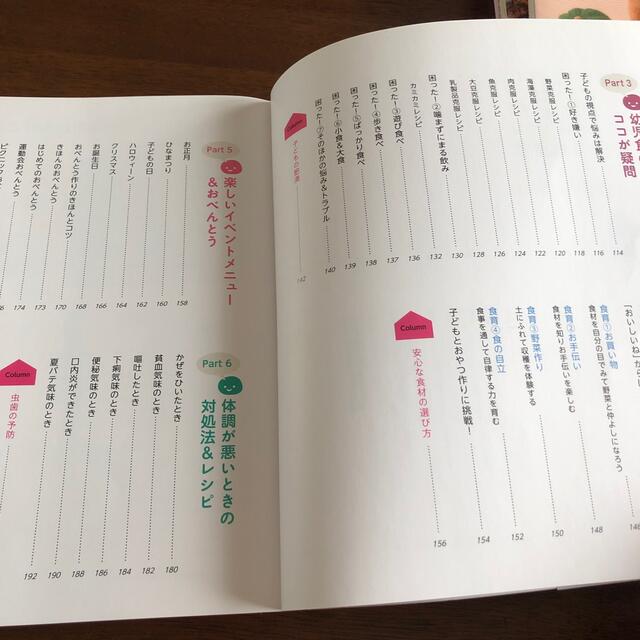 Part 3
幼児食の
ココが疑問
子どもの視点で悩みは解決 114
困ったー!①好き嫌い 116
野菜克服レシピ 118
海藻克服レシピ 120
肉克服レシピ 122
魚克服レシピ 124
大豆克服レシピ 126
乳製品克服レシピ 128
困ったー!②噛まずにまる飲み 130
カミカミレシピ 132
困ったー!③遊び食べ 136
困ったー!④歩き食べ 137
困ったー!⑤ばっかり食べ 138
困ったー!⑥小食&大食 139
困ったー!⑦そのほかの悩み&トラブル 140
Column
子どもの肥満 142
「おいしいね」から 146
食育①お買い物
食材を自分の目でみて野菜と仲よしになろう 148
食育②お手伝い
食材を知りお手伝いを楽しむ 150
食育③野菜作り
土にふれて収穫を体験する 152
食育④食の自立
食事を通して自律する力を育む 154
子どもとおやつ作りに挑戦!
Column
安心な食材の選び方 156
Part 5
楽しいイベントメニュー
&おべんとう
お正月 158
ひなまつり 160
子どもの日 162
ハロウィーン 164
クリスマス 166
お誕生日 168
おべんとう作りのきほんとコツ 168
きほんのおべんとう 170
はじめてのおべんとう 173
運動会おべんとう 174
ピクニック
Part 6
体調が悪いときの
対処法&レシピ
かぜをひいたとき 180
貧血気味のとき 182
嘔吐したとき 184
下痢気味のとき 186
便秘気味のとき 188
口内炎ができたとき 190
夏バテ気味のとき 192
Column
虫歯の予防